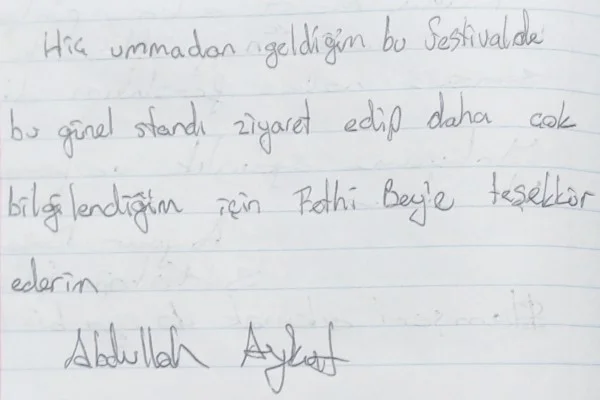 Hiç ummadan geldiğim bu festivalde
bu günel standı ziyaret edip daha çok
bilgilendiğim için Fethi Bey'e teşekkür
ederim
Abdullah